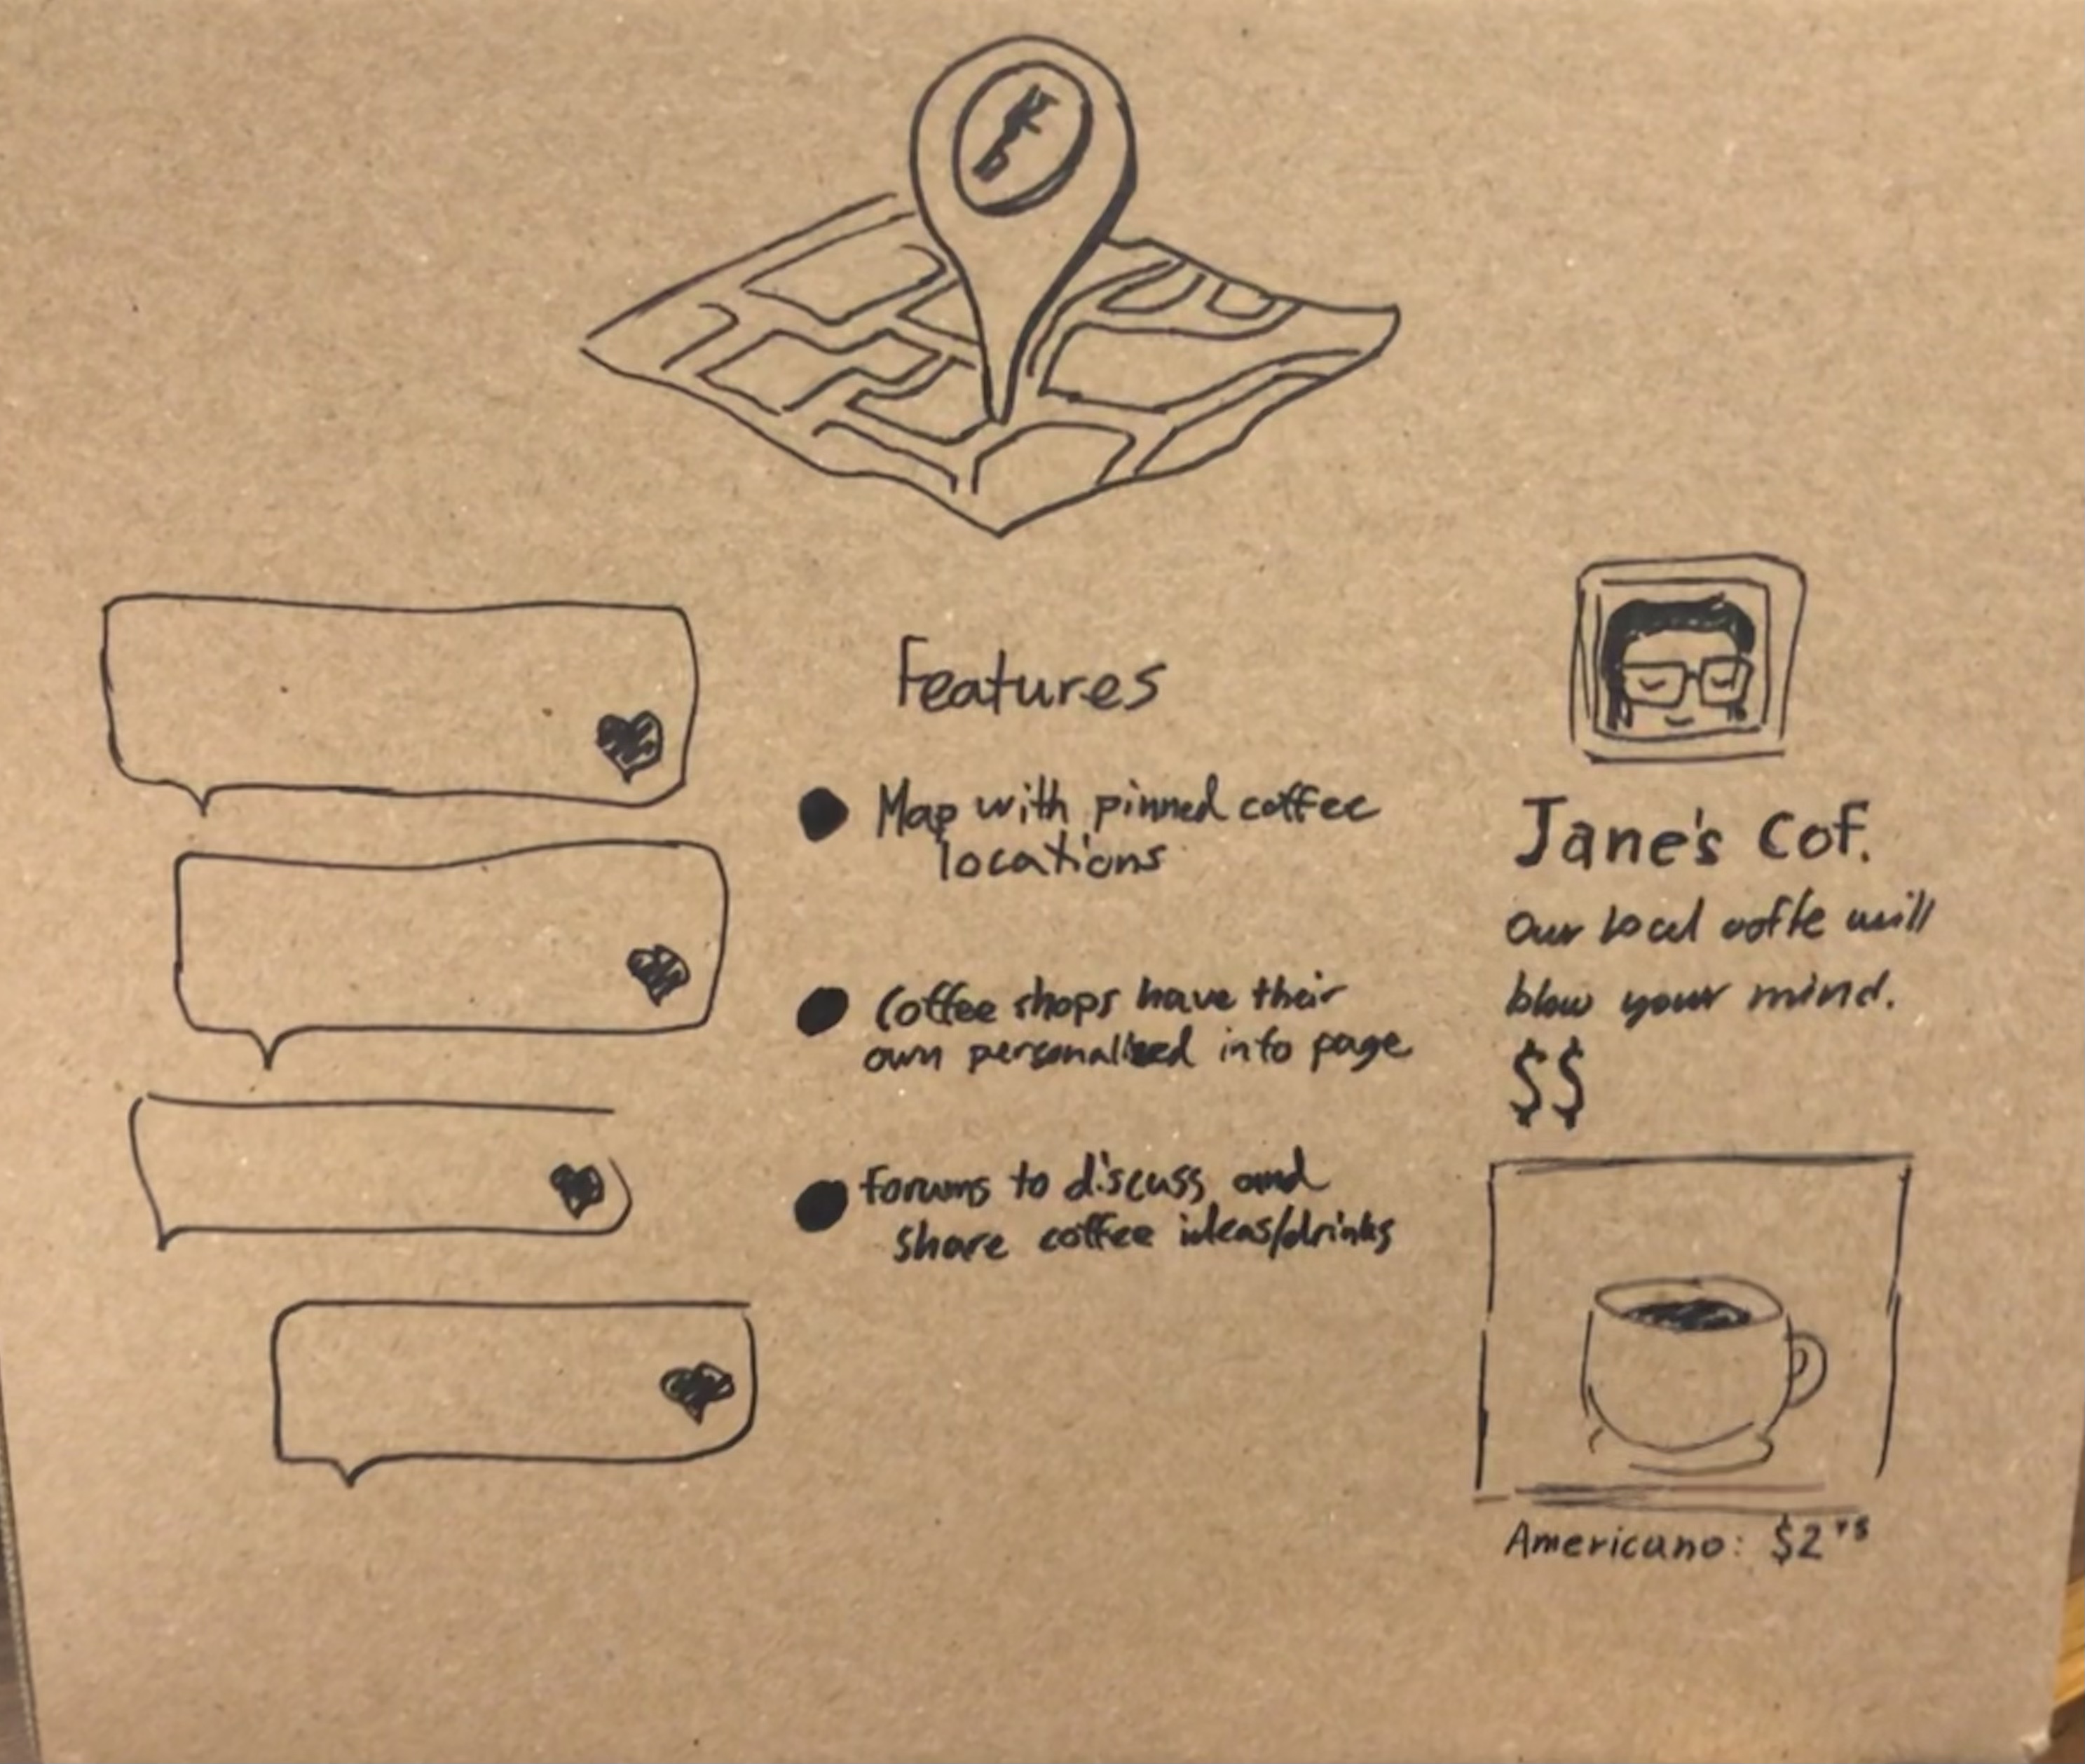 Features
Map with pinned coffee
locations
Coffee shops have their
own personalized info page
Forums to discuss and
share coffee ideas/drinks
Jane's Cof.
Our local coffe will
blow your mind.
$$
Americano: $2